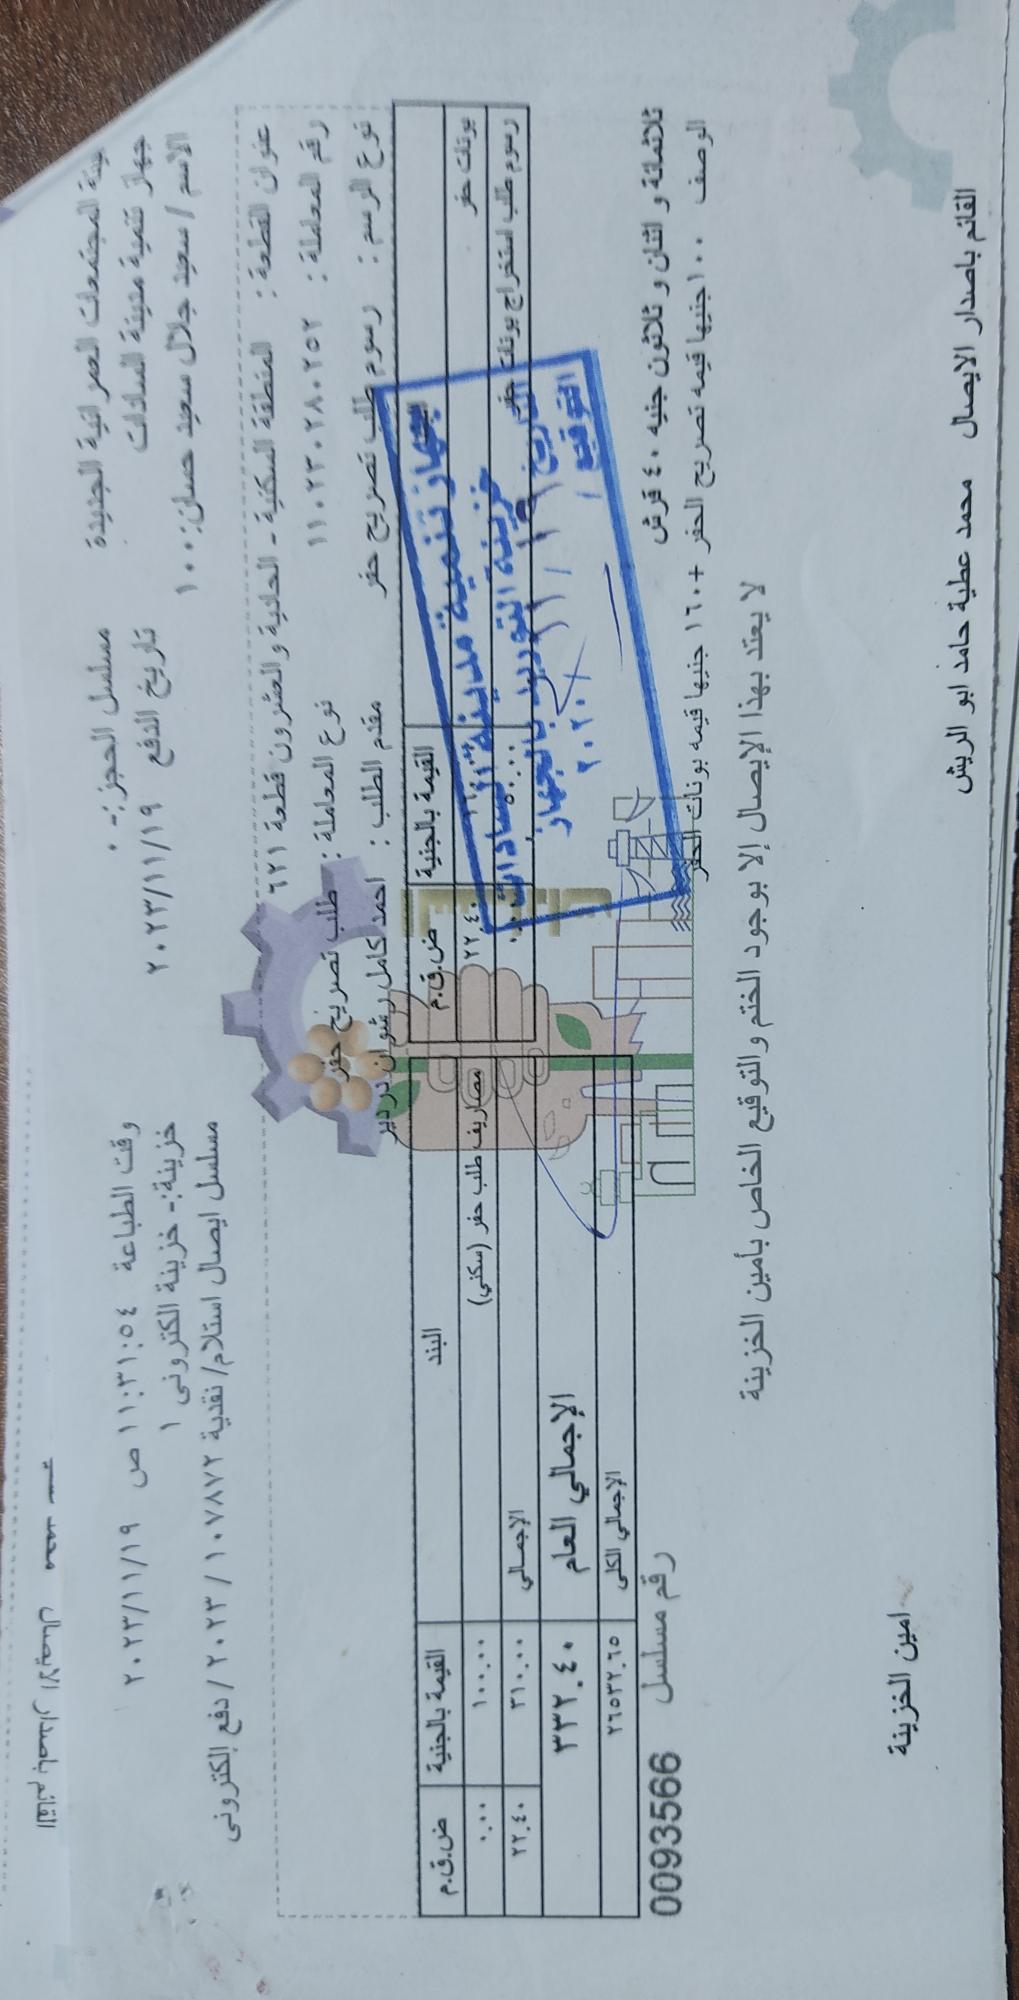 هيئة المجتمعات العمرانية الجديدة مسلسل الحجز:- ٠ وقت الطباعة ١١:٣١:٥٤ ص ٢٠٢٣/١١/١٩
جهاز تنمية مدينة السادات تاريخ الدفع ٢٠٢٣/١١/١٩ خزينة:- خزينة الكترونى ١
الاسم / سعيد جلال سعيد حسان:١٠٠ مسلسل ايصال استلام/ نقدية ١٠٧٨٧٢ / ٢٠٢٣ / دفع إلكترونى
عنوان القطعة : المنطقة السكنية - الحادية والعشرون قطعة ٦٢١
رقم المعاملة : ١١٠٢٣٠٢٨٠٢٥٢ نوع المعاملة : طلب تصريح حفر
نوع الرسم : رسوم طلب تصريح حفر مقدم الطلب : احمد كامل رشوان دردير
القيمة بالجنية ض.ق.م البند القيمة بالجنية ض.ق.م
بونات حفر ٢٢.٤٠ مصاريف طلب حفر (سكني) ١٠٠.٠٠ ٠.٠٠
رسوم طلب استخراج بونات حفر ٥٠.٠٠ الإجمالي ٣١٠.٠٠ ٢٢.٤٠
الإجمالي العام ٣٣٢.٤٠
الإجمالي الكلى ٢٦٥٣٢.٦٥
جهاز تنمية مدينة السادات
خزينة التوريد بالجهاز
التاريخ ١٩ / ١١ / ٢٠٢٠
التوقيع /
ثلاثمائة و اثنان و ثلاثون جنيه ٤٠ قرش رقم مسلسل 0093566
الوصف ١٠٠جنيها قيمه تصريح الحفر +١٦٠ جنيها قيمه بونات الحفر
لا يعتد بهذا الإيصال إلا بوجود الختم والتوقيع الخاص بأمين الخزينة
القائم باصدار الايصال محمد عطية حامد ابو الريش
امين الخزينة
القائم باصدار الايصال محمد